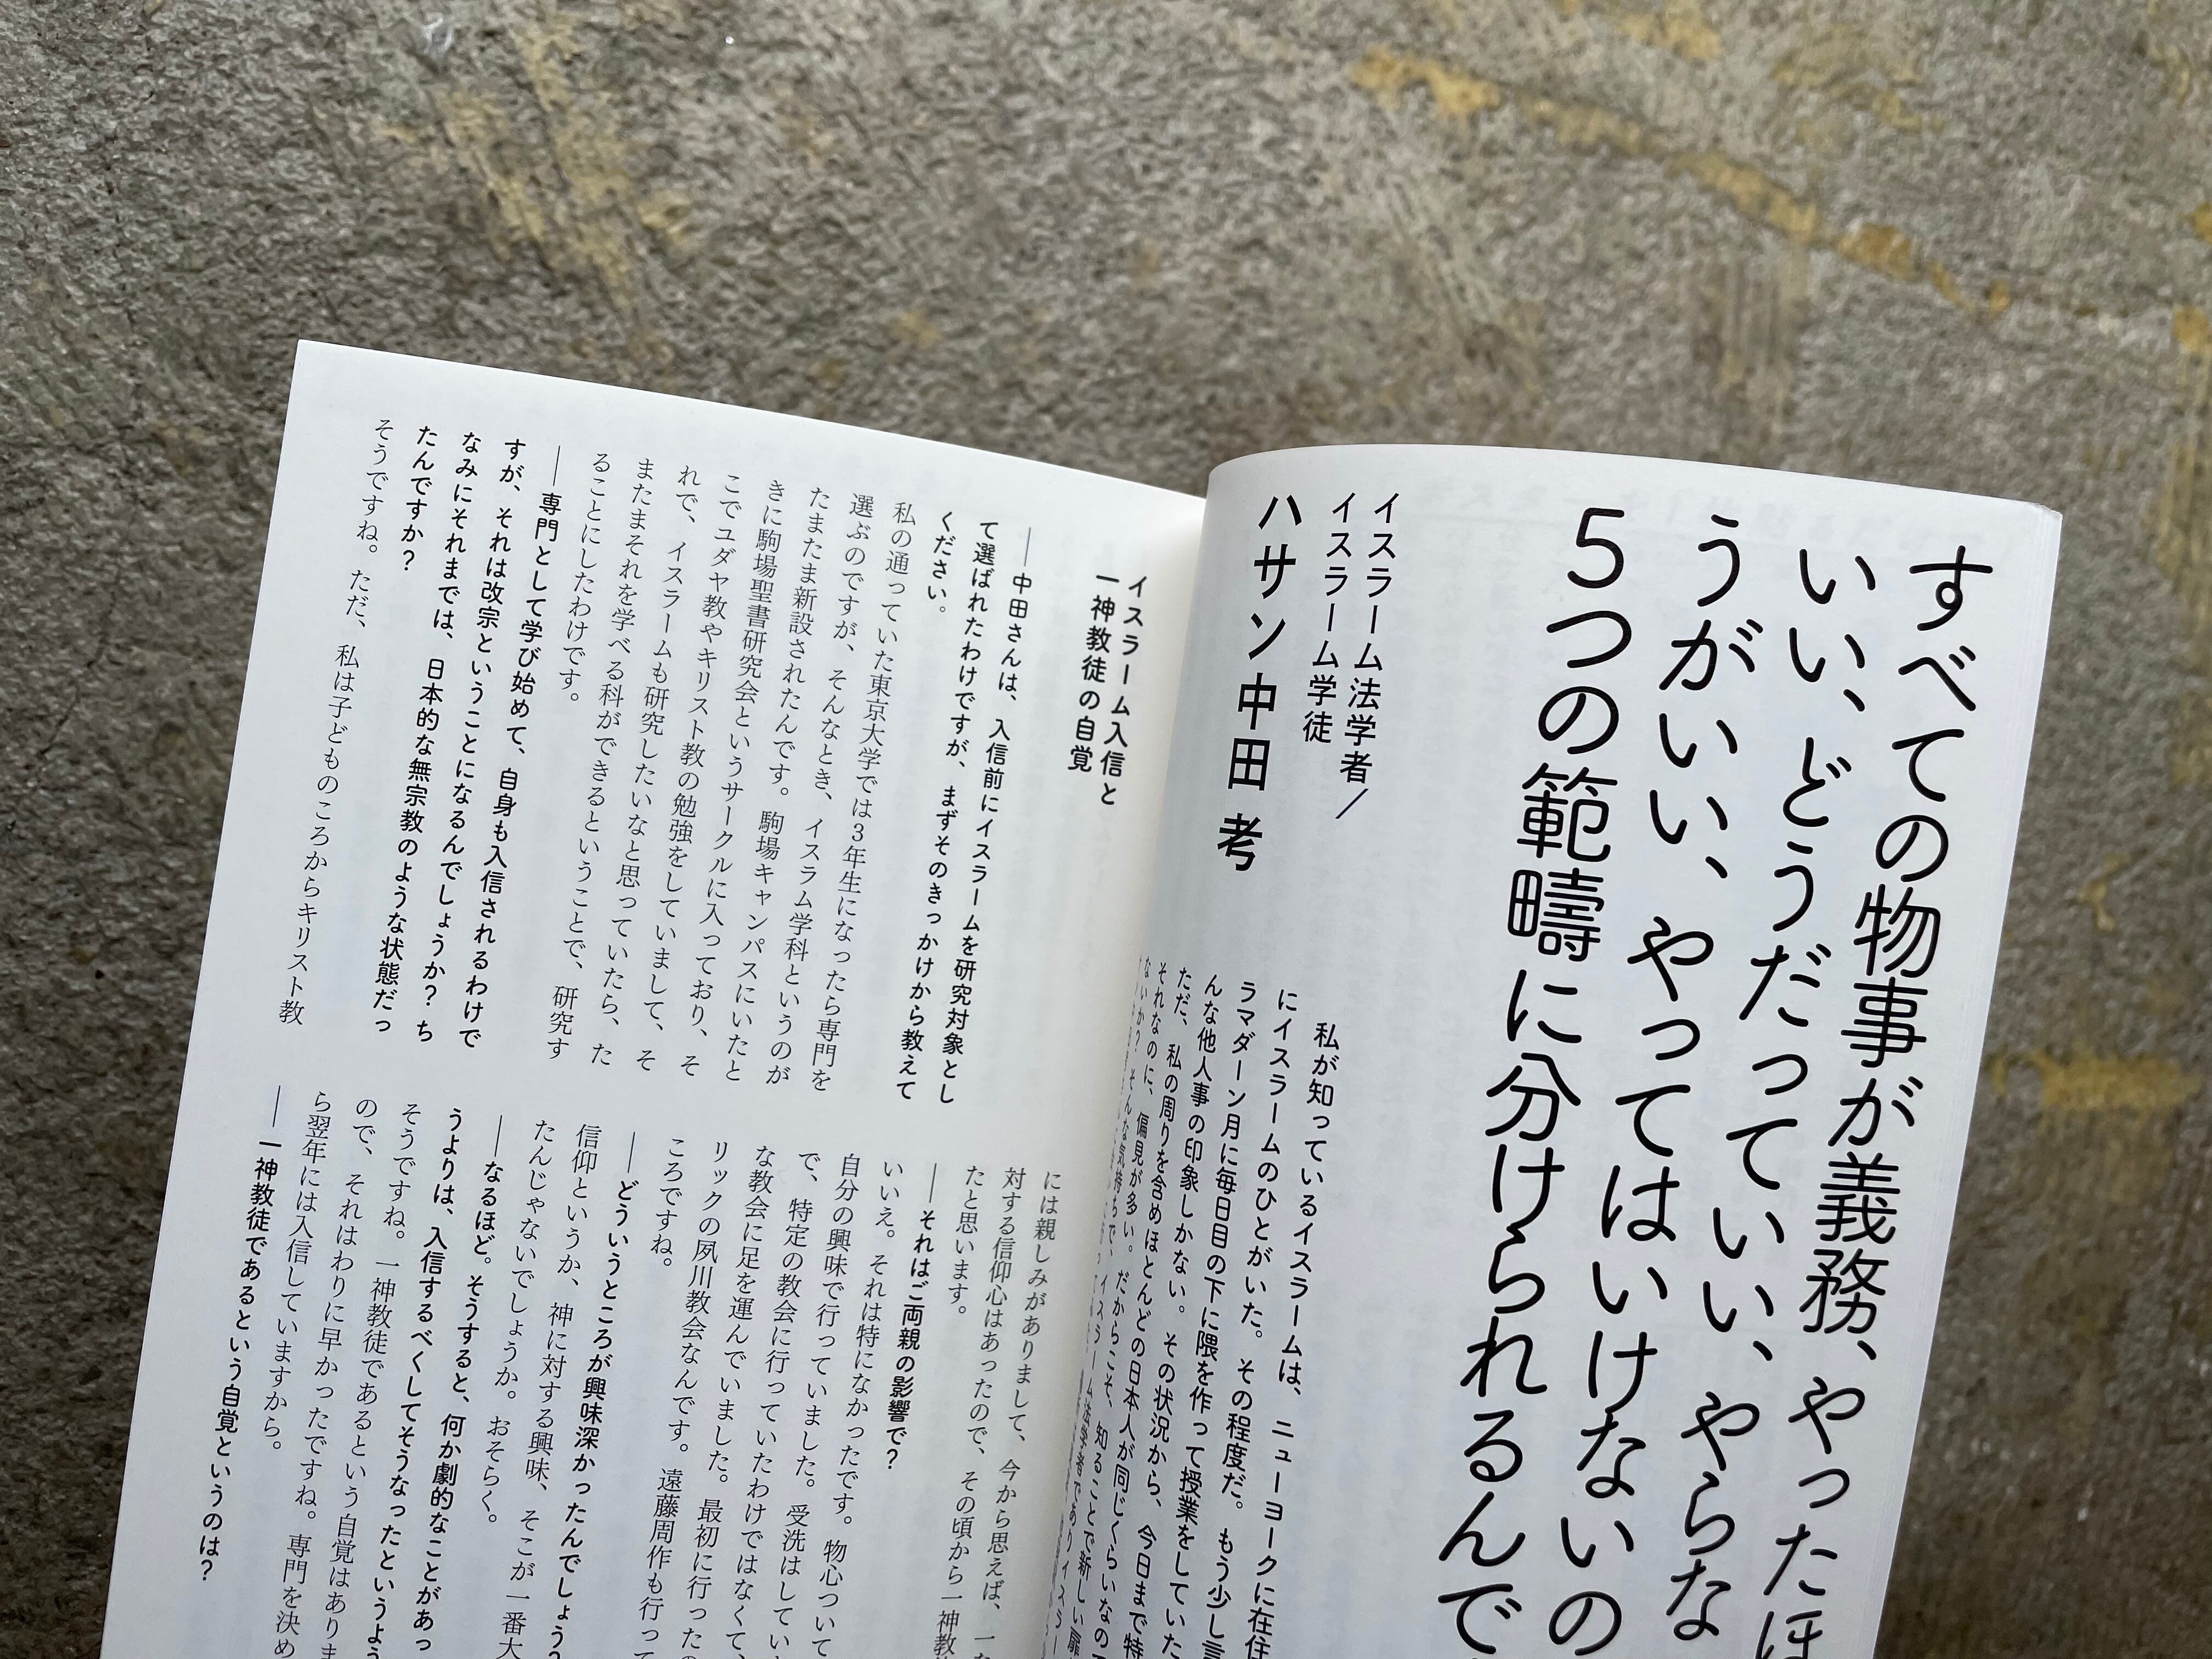 すべての物事が義務、やったほ
いい、どうだっていい、やらな
うがいい、やってはいけないの
5つの範疇に分けられるんで
イスラーム法学者／
イスラーム学徒
ハサン中田 考
私が知っているイスラームは、ニューヨークに在住
にイスラームのひとがいた。その程度だ。もう少し言
ラマダーン月に毎日目の下に隈を作って授業をしていた
んな他人事の印象しかない。その状況から、今日まで特
ただ、私の周りを含めほとんどの日本人が同じくらいなの
それなのに、偏見が多い。だからこそ、知ることで新しい扉
ないか？そんな気持ちで、イスラーム法学者でありイスラー
イスラーム入信と
一神教徒の自覚
──中田さんは、入信前にイスラームを研究対象とし
て選ばれたわけですが、まずそのきっかけから教えて
ください。
私の通っていた東京大学では3年生になったら専門を
選ぶのですが、そんなとき、イスラム学科というのが
たまたま新設されたんです。駒場キャンパスにいたと
きに駒場聖書研究会というサークルに入っており、そ
こでユダヤ教やキリスト教の勉強をしていまして、そ
れで、イスラームも研究したいなと思っていたら、た
またまそれを学べる科ができるということで、研究す
ることにしたわけです。
──専門として学び始めて、自身も入信されるわけで
すが、それは改宗ということになるんでしょうか？ ち
なみにそれまでは、日本的な無宗教のような状態だっ
たんですか？
そうですね。ただ、私は子どものころからキリスト教
には親しみがありまして、今から思えば、一
対する信仰心はあったので、その頃から一神教
たと思います。
──それはご両親の影響で？
いいえ。それは特になかったです。物心ついて
自分の興味で行っていました。受洗はしてい
で、特定の教会に行っていたわけではなくて、
な教会に足を運んでいました。最初に行ったの
リックの夙川教会なんです。遠藤周作も行って
ころですね。
──どういうところが興味深かったんでしょう？
信仰というか、神に対する興味、そこが一番大
たんじゃないでしょうか。おそらく。
──なるほど。そうすると、何か劇的なことがあっ
うよりは、入信するべくしてそうなったというよう
そうですね。一神教徒であるという自覚はありま
ので、それはわりに早かったですね。専門を決め
ら翌年には入信していますから。
──一神教徒であるという自覚というのは？